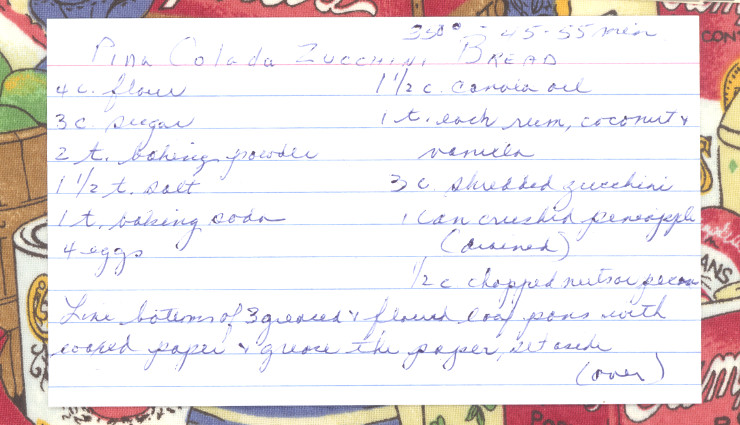 350° - 45-55 min
Pina Colada Zucchini Bread
4 c. flour
3 c. sugar
2 t. baking powder
1 1/2 t. salt
1 t. baking soda
4 eggs
1 1/2 c. canola oil
1 t. each rum, coconut &
vanilla
3 c. shredded zucchini
1 can crushed pineapple
(drained)
1/2 c chopped nuts or pecan
Line bottoms of 3 greased & floured loaf pans with
waxed paper & grease the paper, set aside
(over)